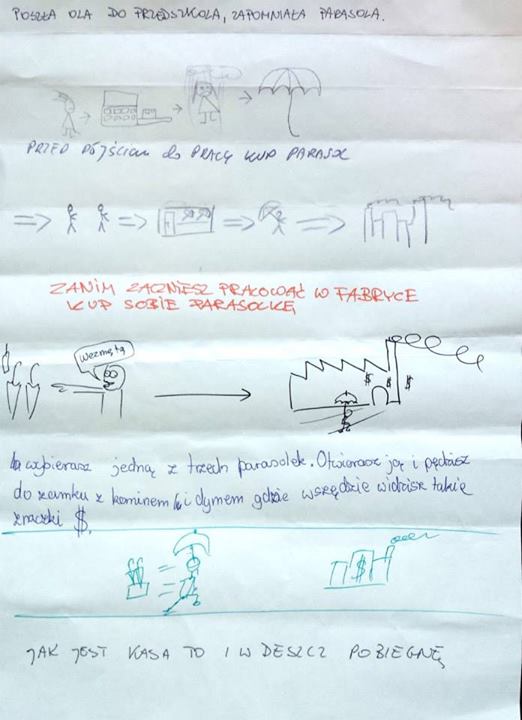 POSZŁA OLA DO PRZEDSZKOLA, ZAPOMNIAŁA PARASOLA.
PRZED PÓJŚCIEM do PRACY KUP PARASOL
ZANIM ZACZNIESZ PRACOWAĆ W FABRYCE
KUP SOBIE PARASOLKĘ
Wezmę tą
$ $ $
$
wybierasz jedną z trzech parasolek. Otwierasz ją i pędzisz
do zamku z kominem i dymem gdzie wszędzie widzisz takie
znaczki $.
$
JAK JEST KASA TO I W DESZCZ POBIEGNĘ